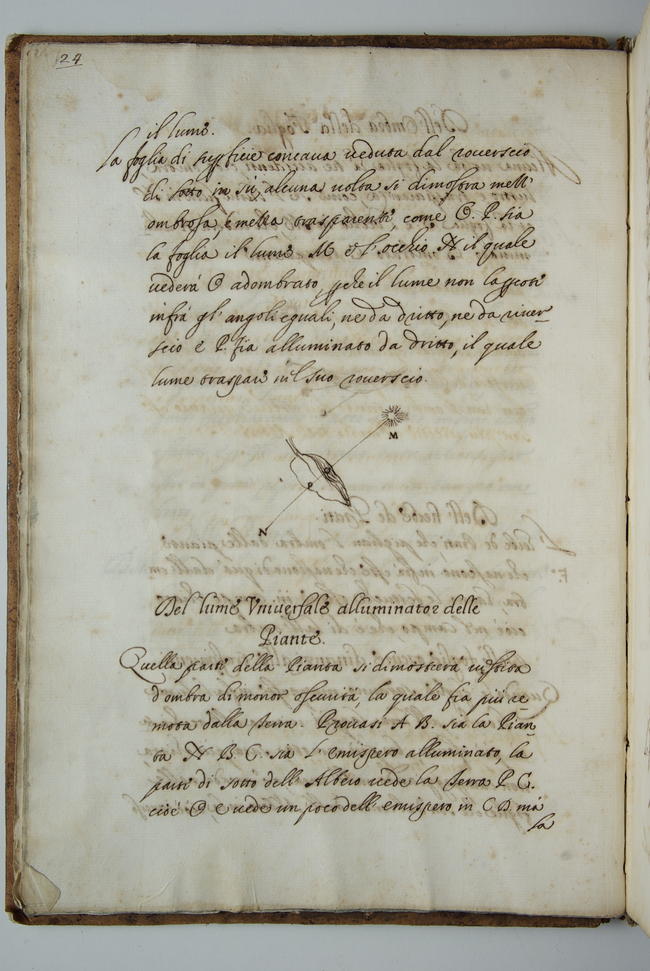 24
il lume.
la foglia di superficie concava veduta dal roverscio
di sotto in sù, alcuna volta si dimostra mezz'
ombrosa, e mezza trasparente, come O. P. sia
la foglia il lume M et l'occhio N il quale
vederà O adombrato, perche il lume non la
infrà gl'angoli eguali, ne da dritto, ne da river-
scio e P. sia alluminato da dritto, il quale
lume traspare nel suo roverscio.
M
o
P
N
Del lume Vniversale alluminator delle
Piante.
Quella parte della Pianta si dimostera vestita
d'ombra di minor oscurità, la quale fia più re
mota dalla terra. Provasi A B. sia la Pian
ta N B C. sia l'emispero alluminato, la
parte di sotto dell'Albero vede la terra P C.
cioè O e vede un poco dell'emispero in C D. mà
la